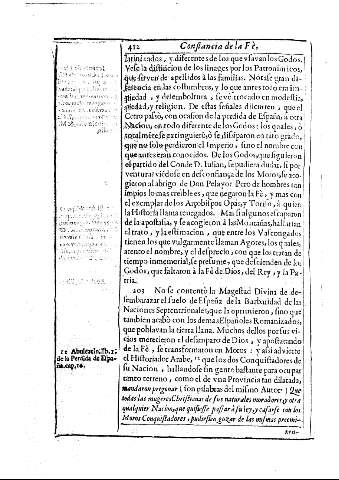 412 Constancia de la Fè,
latinizados, y diferentes de los que vsavan los Godos.
Vese la distincion de los linages por los Patronimicos,
que sirven de apellidos à las familias. Notase gran di-
ferencia en las costumbres, y lo que antes todo era im-
piedad, y desemboltura, se vè trocado en modestia,
piedad, y religion. De estas señales discurro, que el
Cetro passò, con ocasion de la perdida de España, à otra
Nacion, en todo diferente de los Godos: los quales, ò
totalmẽte se extinguierõ, ò se dissiparon en tato grado,
que no solo perdieron el Imperio, sino el nombre con
que antes eran conocidos. De los Godos, que siguieron
el partido del Conde D. Iulian, se pudiera dudar, si por
venturar viẽdose en desconfiança de los Moros, se aco-
gieron al abrigo de Don Pelayo? Pero de hombres tan
impios lo mas creible es, que negaron la Fè, y mas con
el exemplar de los Arçobispos Opas, y Toriso, à quien
la Historia llama renegados. Mas si algunos escaparon
de la apostasia, y se acogieron à las Montañas, hallarian
el trato, y la estimacion, que entre los Vascongados
tienen los que vulgarmente llaman Agotes, los quales,
atento el nombre, y el desprecio, con que los tratan de
tiempo inmemorial, se presume, que descienden de los
Godos, que faltaron à la Fè de Dios, del Rey, y la Pa-
tria.
203 No se contentò la Magestad Divina de de-
sembarazar el suelo de España de la Barbaridad de las
Naciones Septentrionales, que la oprimieron, sino que
tambien acabò con los demàs Españoles Romanizados,
que poblavan la tierra llana. Muchos dellos por sus vi-
cios merecieron el desamparo de Dios, y apostatando
de la Fè, se transformaron en Moros: y assi advierte
el Historiador Arabe, que los dos Conquistadores de
su Nacion, hallandose sin gente bastante para ocupar
tanto terreno, como el de vna Provincia tan dilatada,
mandaron pregonar (son palabras del mismo Autor) Que
todas las mugeres Christianas de sus naturales moradores, y otra
qualquier Nacion, que quisiesse passar à su ley, y casarse con los
Moros Conquistadores, pudiessen gozar de las mismas preemi-
11 Abulcacin, lib. 2.
de la Perdida de Espa-
ña, cap. 10.